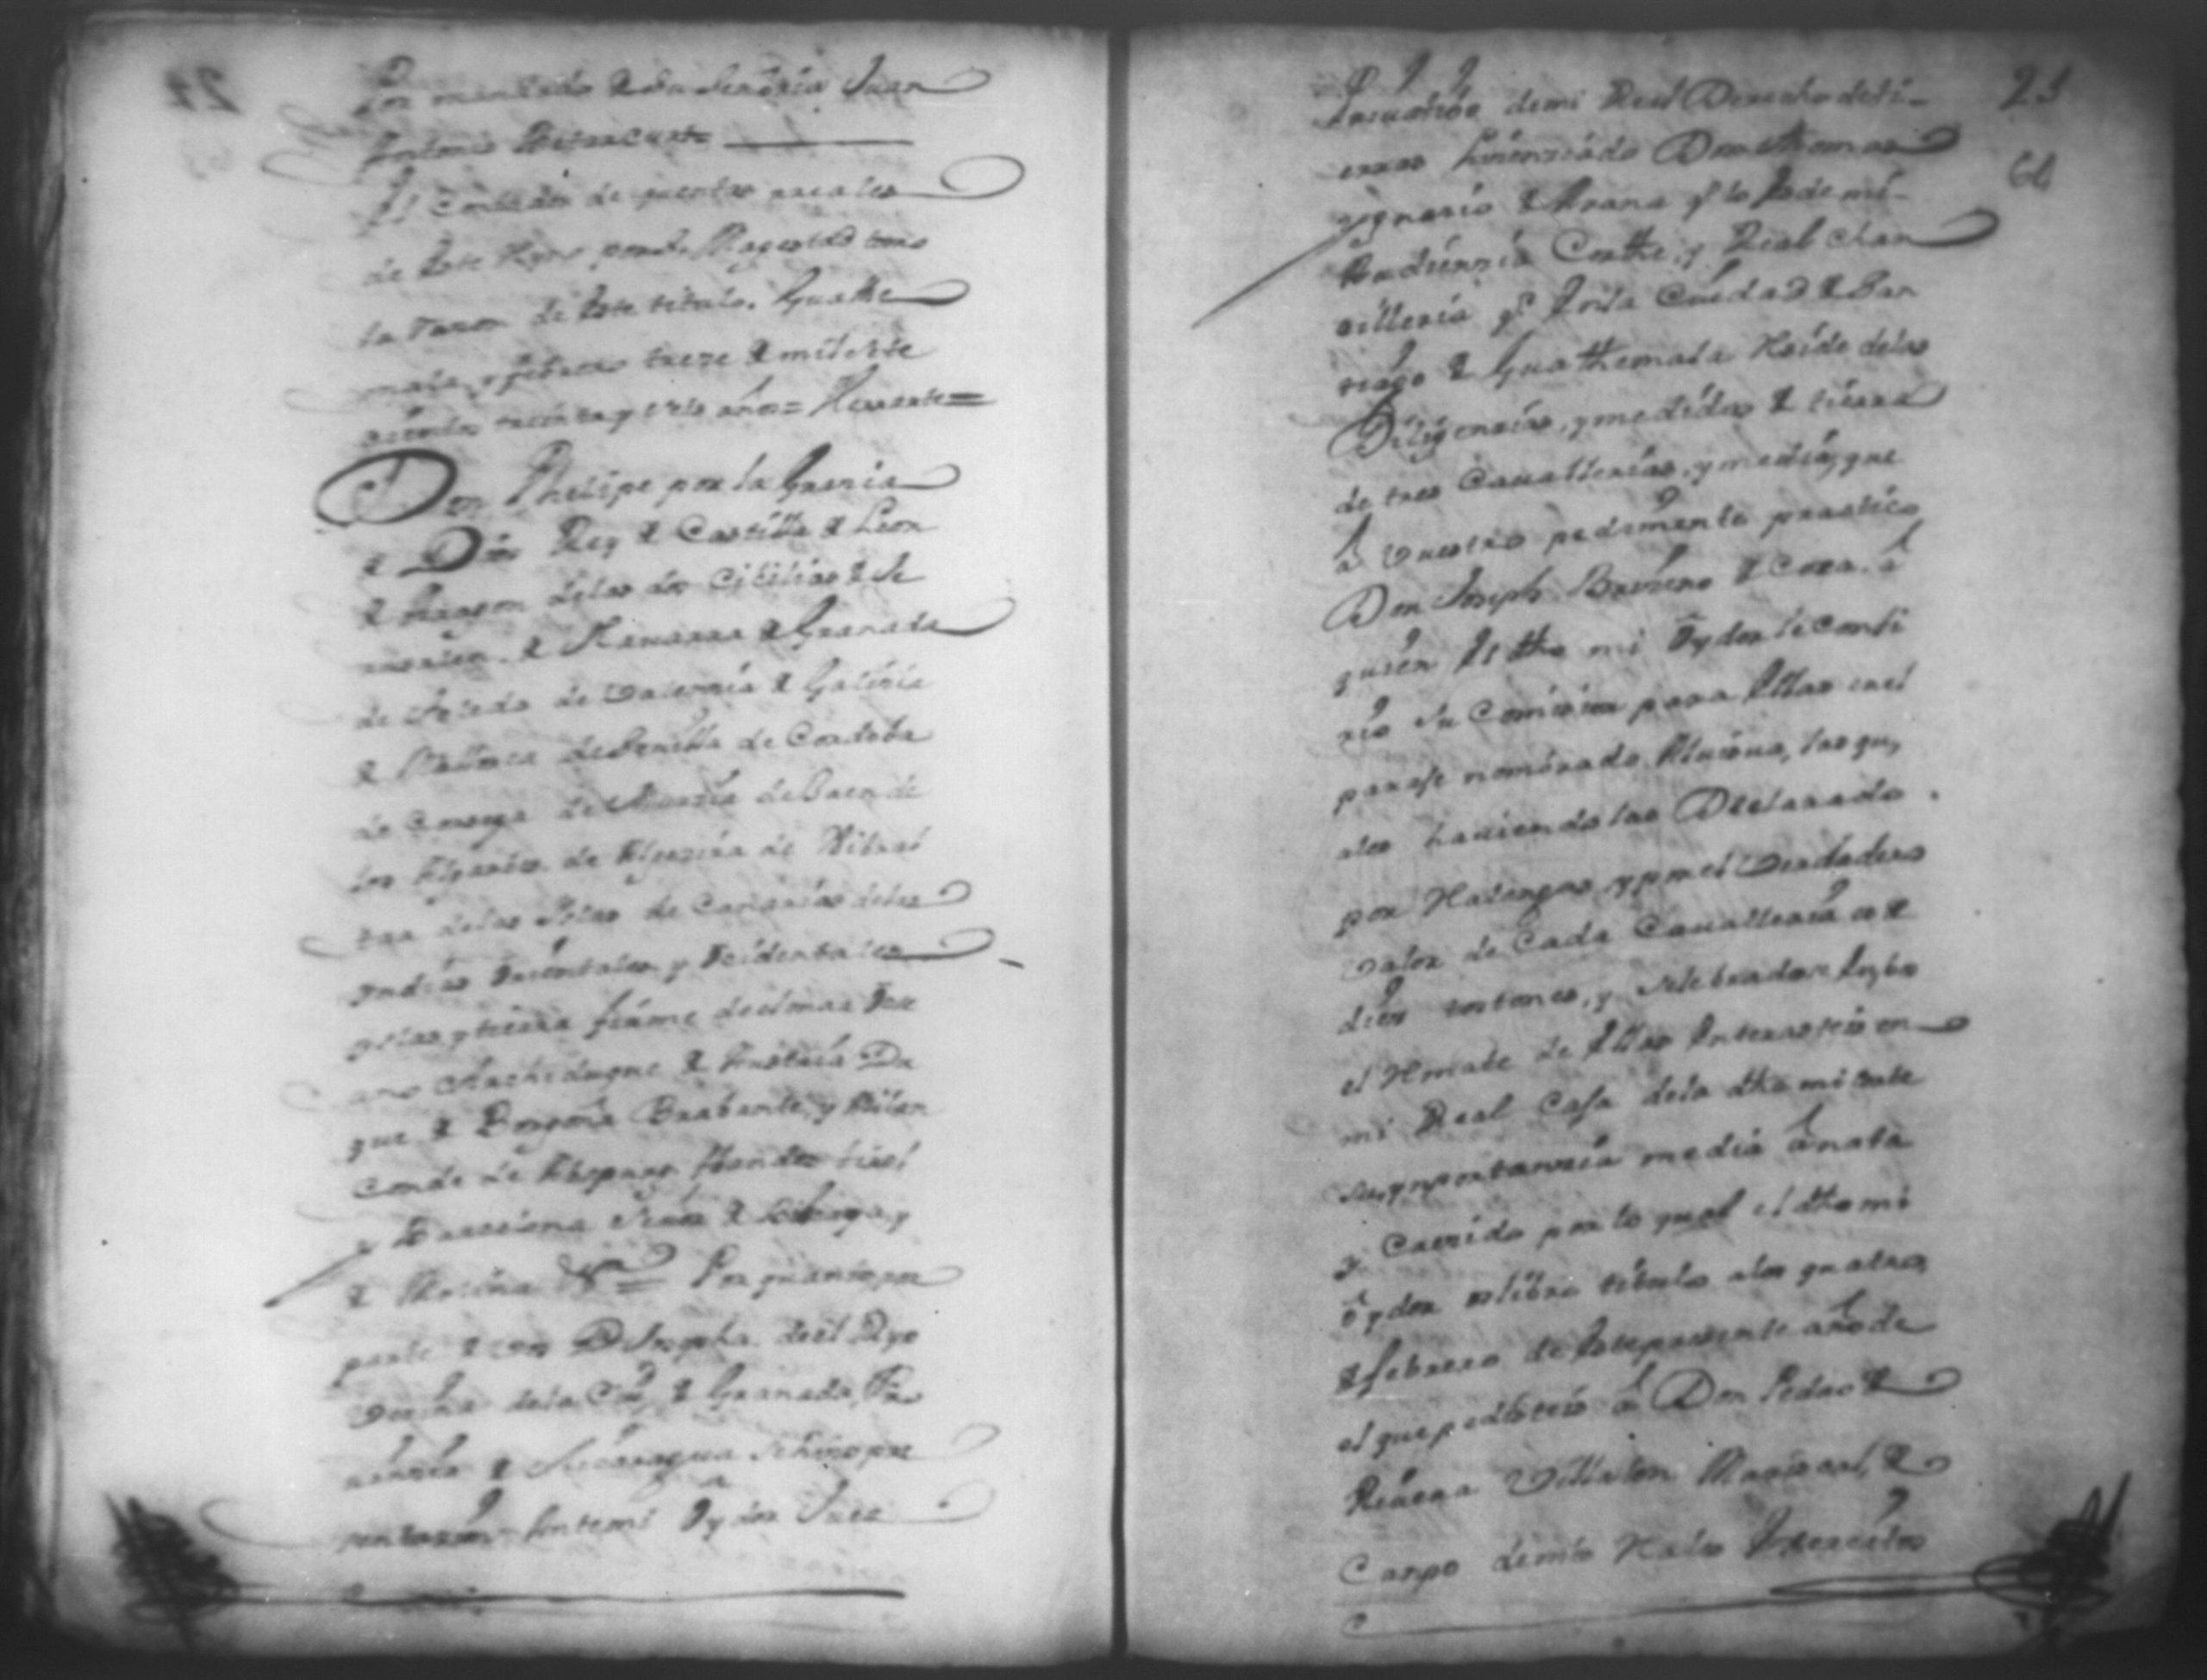 Por mandado de Su Señoria Juan
Antonio Betancurt
El Contador de quentas reales
de este Reyno por Su Magestad tomo
la razon de este titulo. Guathe
mala, y febrero treze de mil sete
cientos treinta y seis años = Herrarte =
Don Phelipe por la Gracia
de Dios Rey de Castilla de Leon
de Aragon delas dos Cicilias de Je
rusalen. de Nauarra de Granada
de Toledo de Valencia de Galicia
de Mallorca de Seuilla de Cordoba
de Corsega de Murcia de Jaen de
los Algarbes de Algecira de Gibral
tar delas Yslas de Canarias delas
Yndias Orientales y Ocidentales
yslas y tierra firme de el mar Oce
ano Archiduque de Austria Du
que de Borgoña Brabante, y Milan
Conde de Abspurg flandes tirol
y Barcelona Señor de Viscaya y
de Molina &a = Por quanto por
parte de vos D Josepha del
vecina dela Ciud de Granada, Pro
vincia de Nicaragua se hizo pre
sentazion Ante mi Oydor Juez
Priuatibo de mi Real Derecho de ti-
erras Lizenziado Don Thomas
Ygnacio de Arana qe lo es de mi
Audienzia Corthe, y Real Chan
zilleria qe en la Ciudad de San
tiago de Guathemala Reside delas
Diligenzias, y medidas de tierra
de tres Cauallerias, y media, que
â vuestro pedimento practico
Don Joseph Briseno de Coca. â
quien el dho mi Oydor le confi
rio su Comision para ellas en el
paraje nombrado las qu,
ales haviendolas Declarado
por Realengas, y por el verdadero
valor de Cada Caualleria a de
diez tostones, y selebradose en vos
el Rmate de ellas Enterasteis en
mi Real Caja dela dha mi Corte
su ymportanzia media ânata
y Cuerido por lo qual el dho mi
ôydor os libro titulo alos quatro
de febrero de este presente año de
el que pedisteis â Don Pedro de
Riuera Villalon Mariscal, de
Campo demis Rales Exercitos
23
64